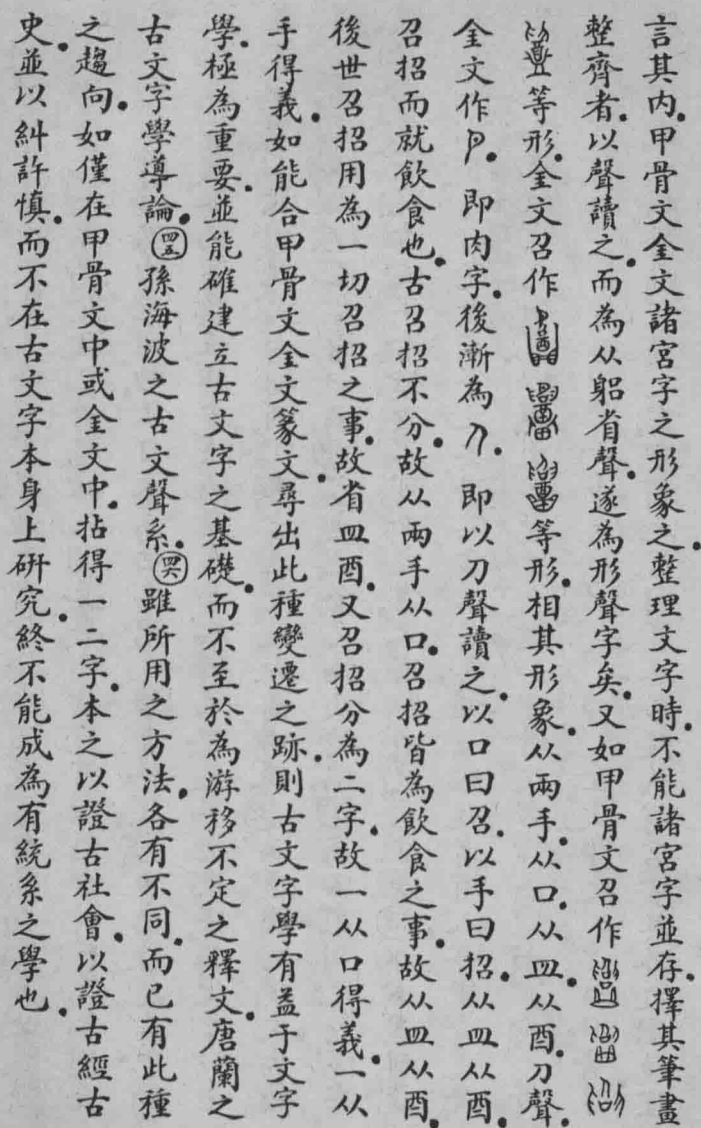 言其内.甲骨文金文諸宮字之形象之.整理文字時.不能諸宮字並存.擇其筆畫
整齊者.以聲讀之.而為从躳省聲.遂為形聲字矣.又如甲骨文召作
等形.金文召作 等形.相其形象.从兩手.从口.从皿.从酉.刀聲.
金文作 .即肉字.後漸為 .即以刀聲讀之.以口曰召.以手曰招.从皿从酉.
召招而就飲食也.古召招不分.故从兩手从口.召招皆為飲食之事.故从皿从酉.
後世召招用為一切召招之事.故省皿酉.又召招分為二字.故一从口得義.一从
手得義.如能合甲骨文金文篆文.尋出此種變遷之跡.則古文字學有益于文字
學.極為重要.並能確建立古文字之基礎.而不至於為游移不定之釋文.唐蘭之
古文字學導論.㊺孫海波之古文聲系.㊻雖所用之方法.各有不同.而已有此種
之趨向.如僅在甲骨文中或金文中.拈得一二字.本之以證古社會.以證古經古
史.並以糾許慎.而不在古文字本身上研究.終不能成為有統系之學也.